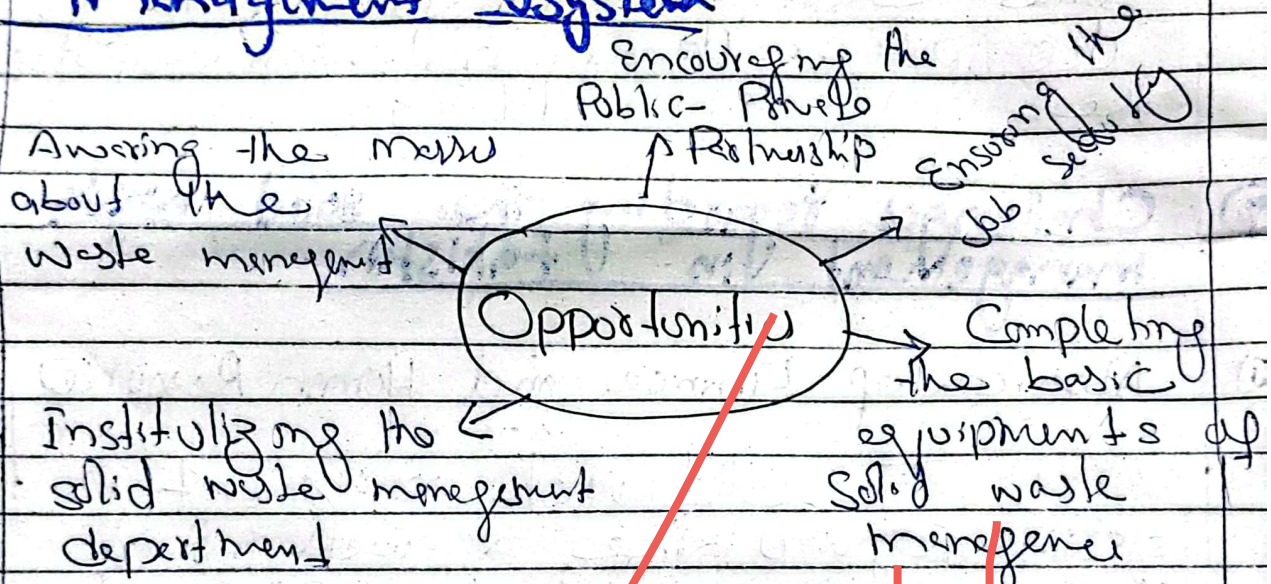 Management System
Encouraging the
Public- Private
Partnership
Ensuring the
Job security
Awaring the Masses
about the
waste management
Opportunities
Completing
the basic
equipments of
solid waste
managemen
Institulizing the
solid waste management
department